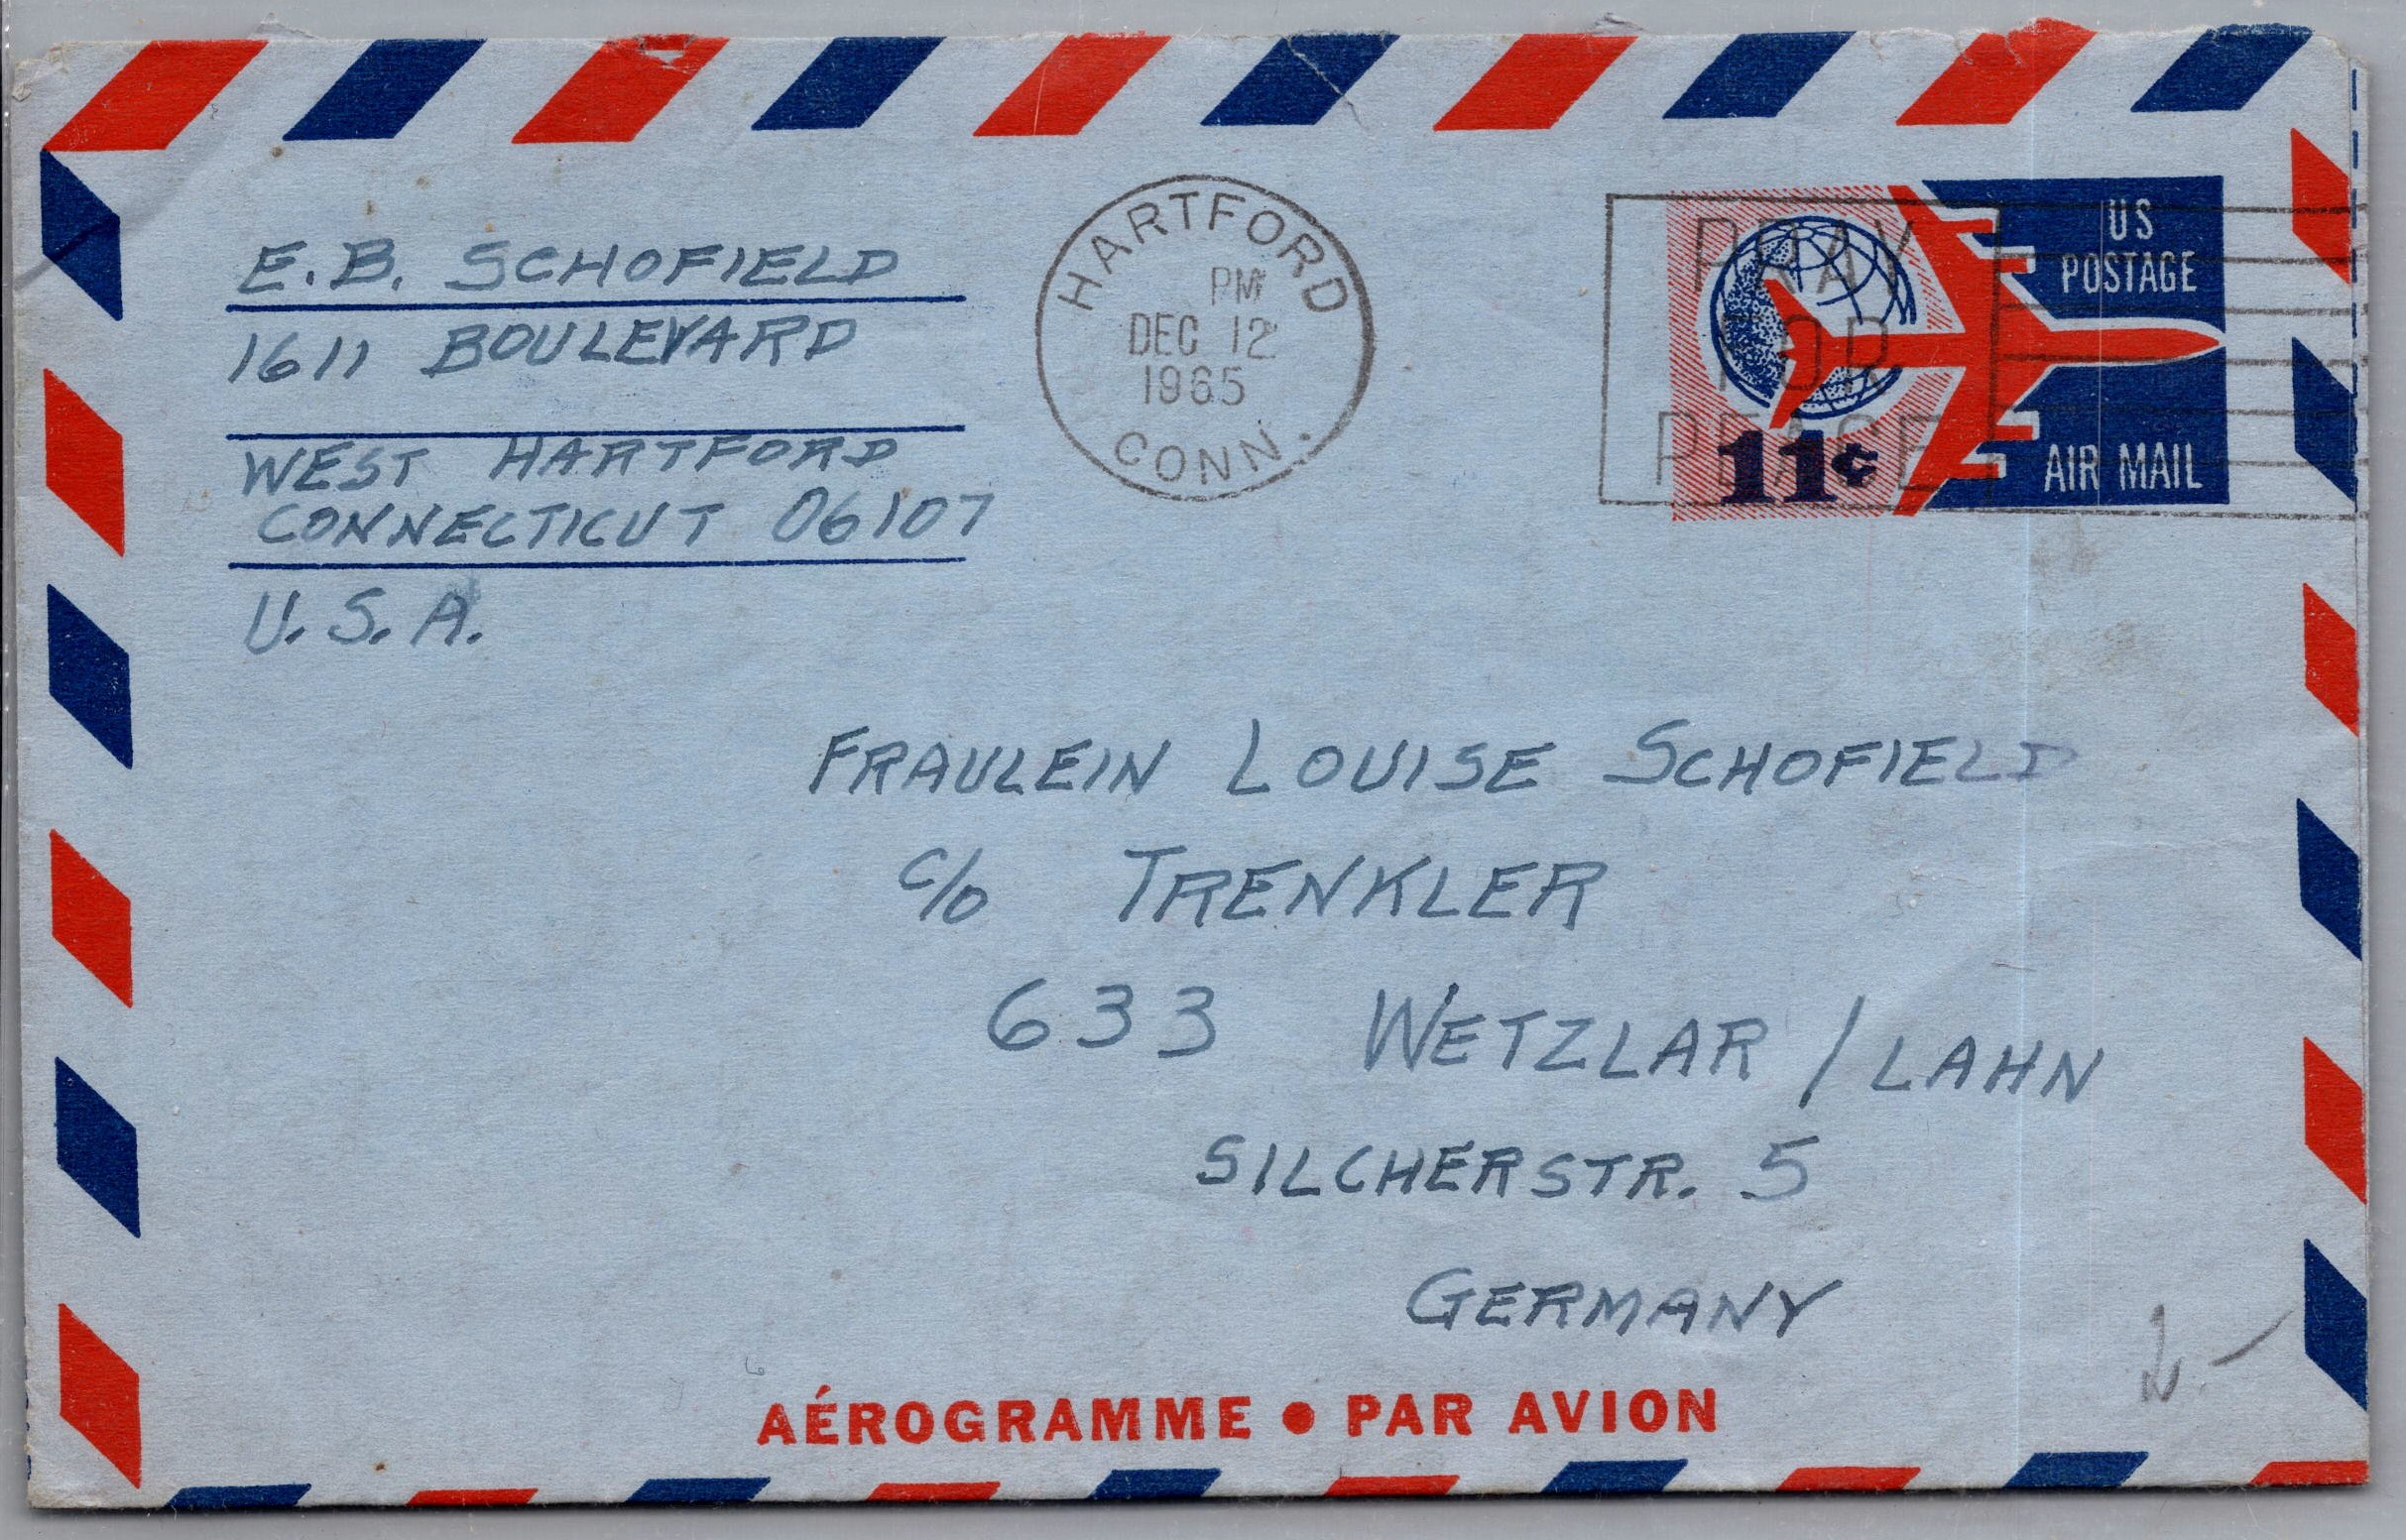 E.B. SCHOFIELD
1611 BOULEVARD
WEST HARTFORD
CONNECTICUT 06107
U.S.A.
HARTFORD
PM
DEC 12
1965
CONN.
PRAY
FOR
PEACE
US
POSTAGE
11¢
AIR MAIL
FRAULEIN LOUISE SCHOFIELD
c/o TRENKLER
633 WETZLAR / LAHN
SILCHERSTR. 5
GERMANY
2.-
AÉROGRAMME • PAR AVION